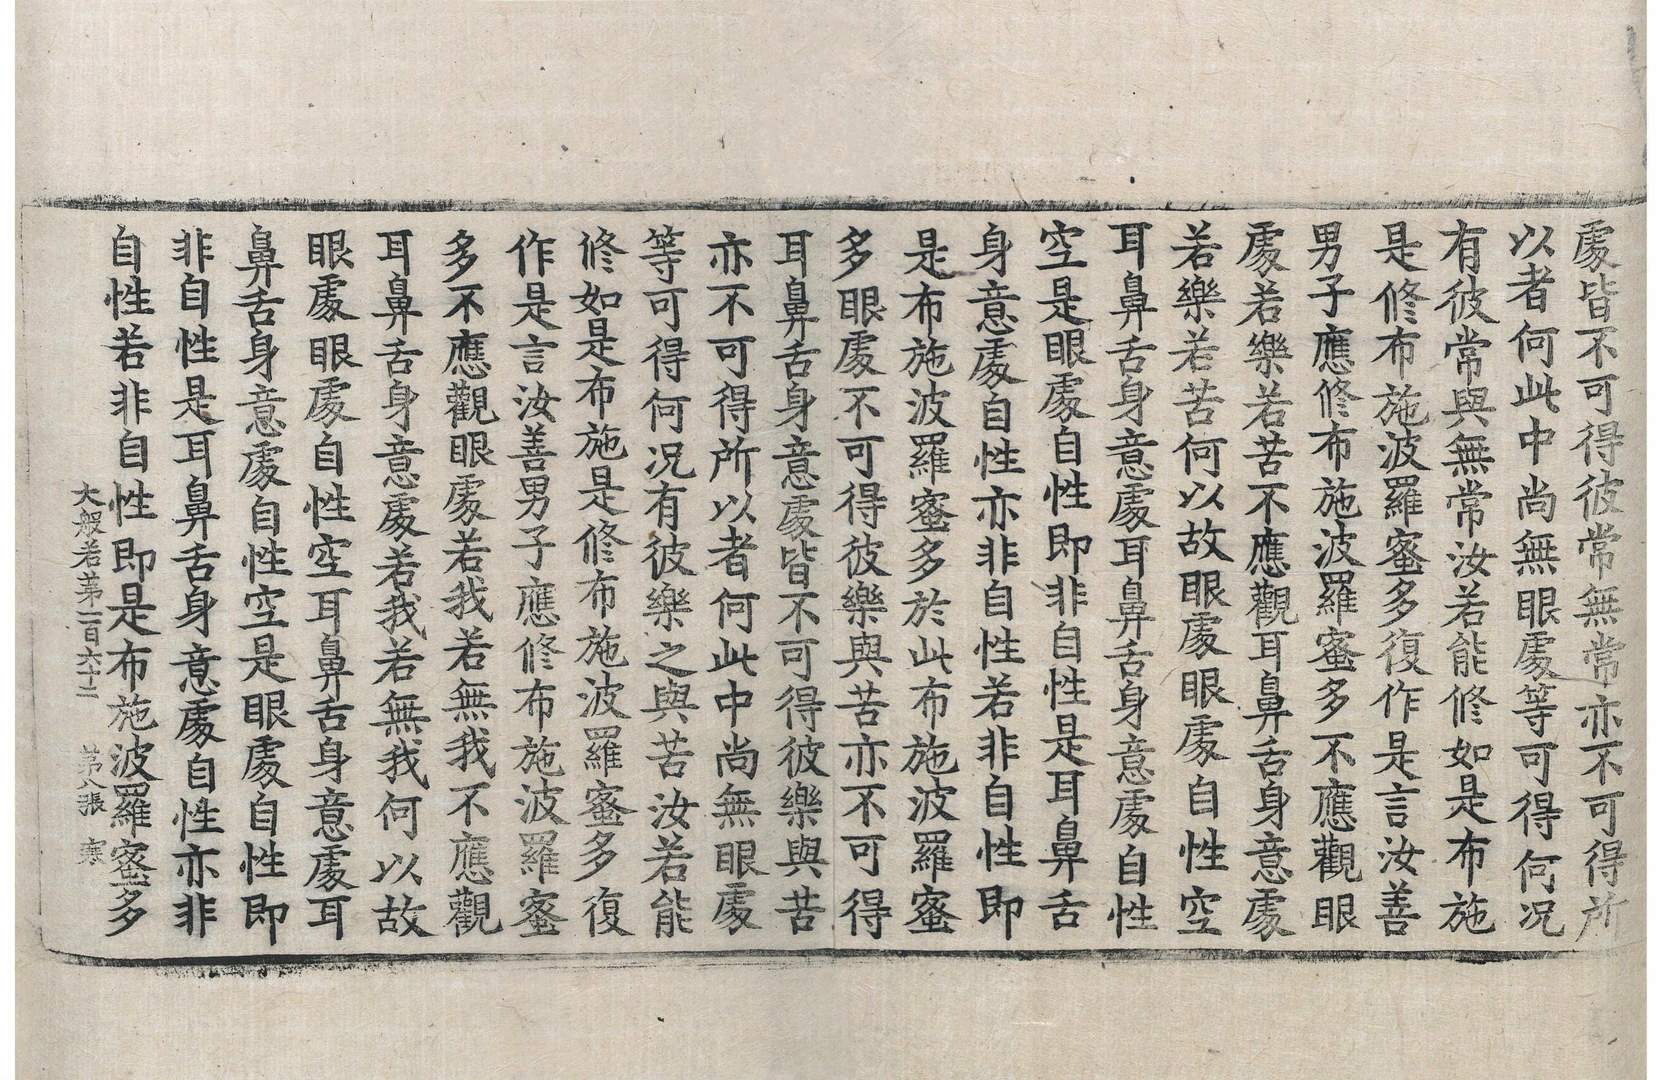 處皆不可得彼常無常亦不可得所
以者何此中尚無眼處等可得何况
有彼常與無常汝若能修如是布施
是修布施波羅蜜多復作是言汝善
男子應修布施波羅蜜多不應觀眼
處若樂若苦不應觀耳鼻舌身意處
若樂若苦何以故眼處眼處自性空
耳鼻舌身意處耳鼻舌身意處自性
空是眼處自性即非自性是耳鼻舌
身意處自性亦非自性若非自性即
是布施波羅蜜多於此布施波羅蜜
多眼處不可得彼樂與苦亦不可得
耳鼻舌身意處皆不可得彼樂與苦
亦不可得所以者何此中尚無眼處
等可得何况有彼樂之與苦汝若能
修如是布施是修布施波羅蜜多復
作是言汝善男子應修布施波羅蜜
多不應觀眼處若我若無我不應觀
耳鼻舌身意處若我若無我何以故
眼處眼處自性空耳鼻舌身意處耳
鼻舌身意處自性空是眼處自性即
非自性是耳鼻舌身意處自性亦非
自性若非自性即是布施波羅蜜多
大般若第一百六十二 第八張 寒